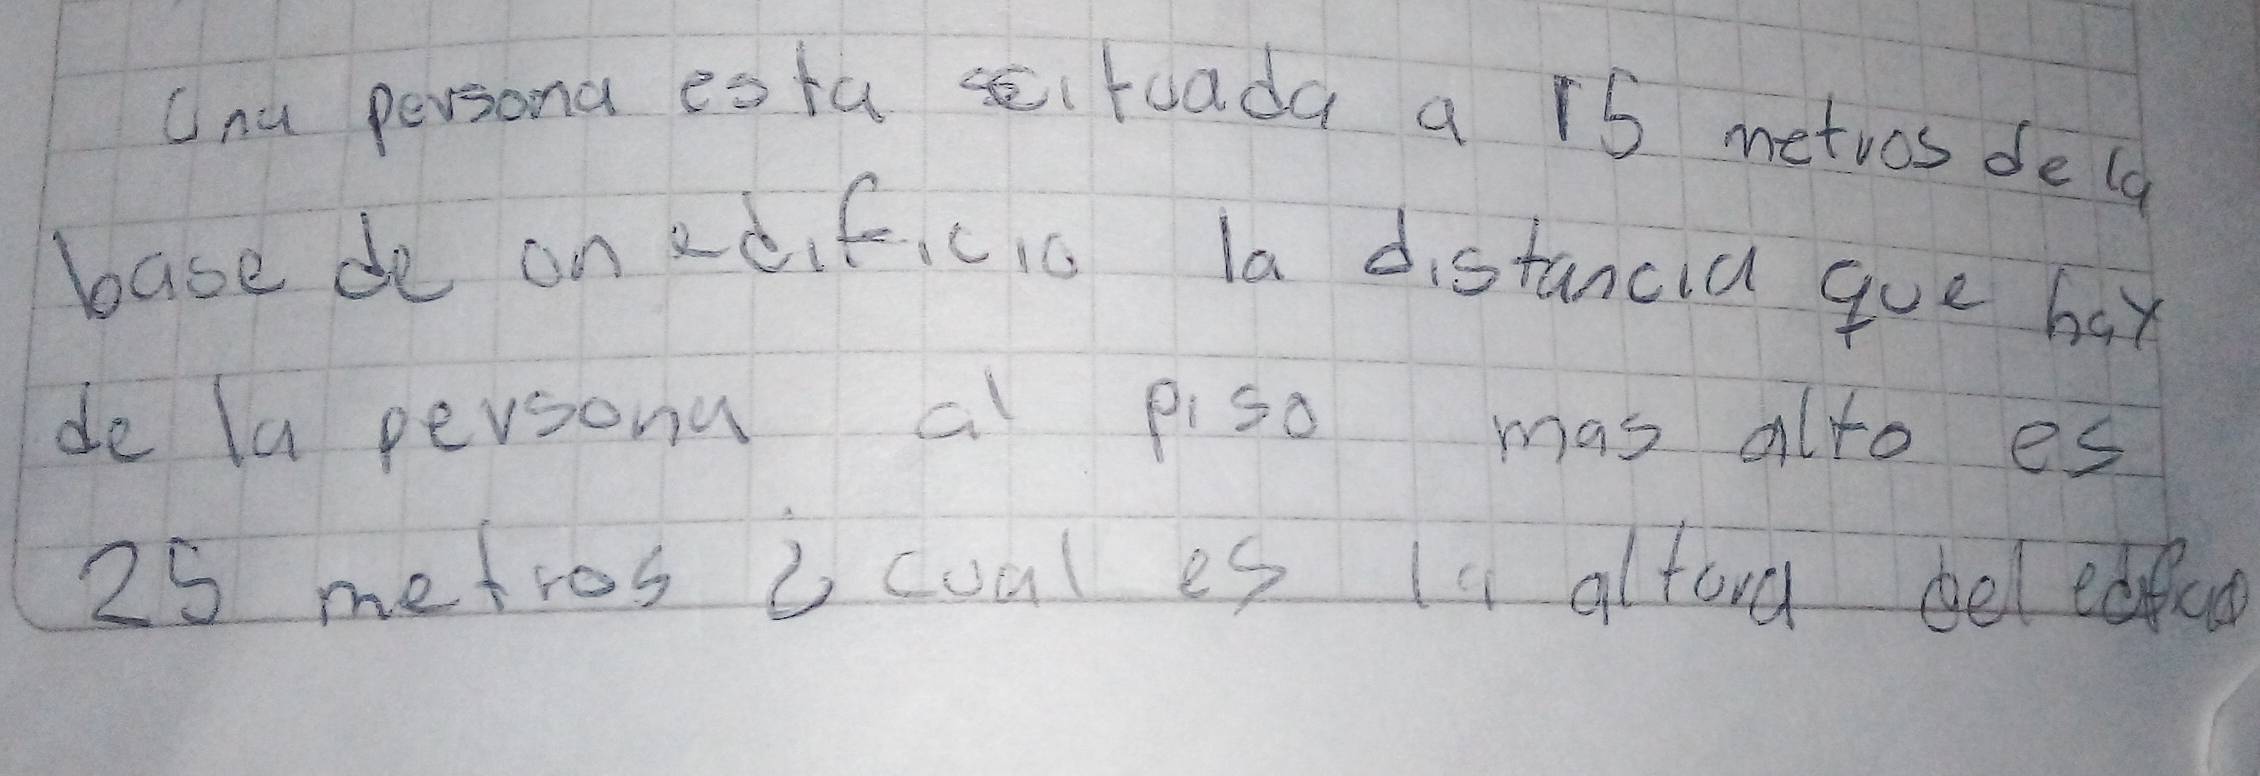 Una persona esta situada a 15 metros de la
base de un edificio la distancia que hay
de la persona al piso mas alto es
25 metros ¿ cual es la altura del edificio